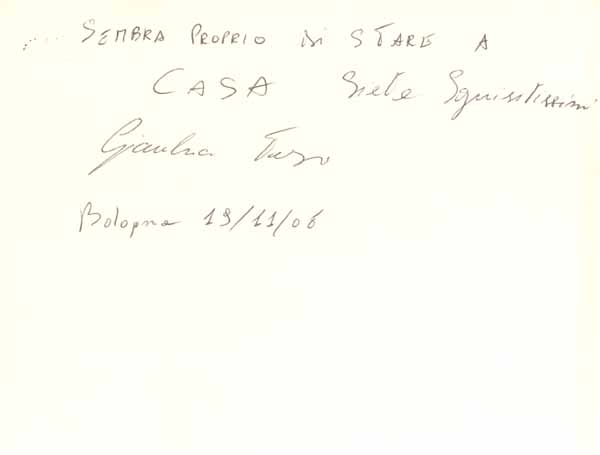 SEMBRA PROPRIO DI STARE A
CASA Siete Squisitissimi
Bologna 19/11/06